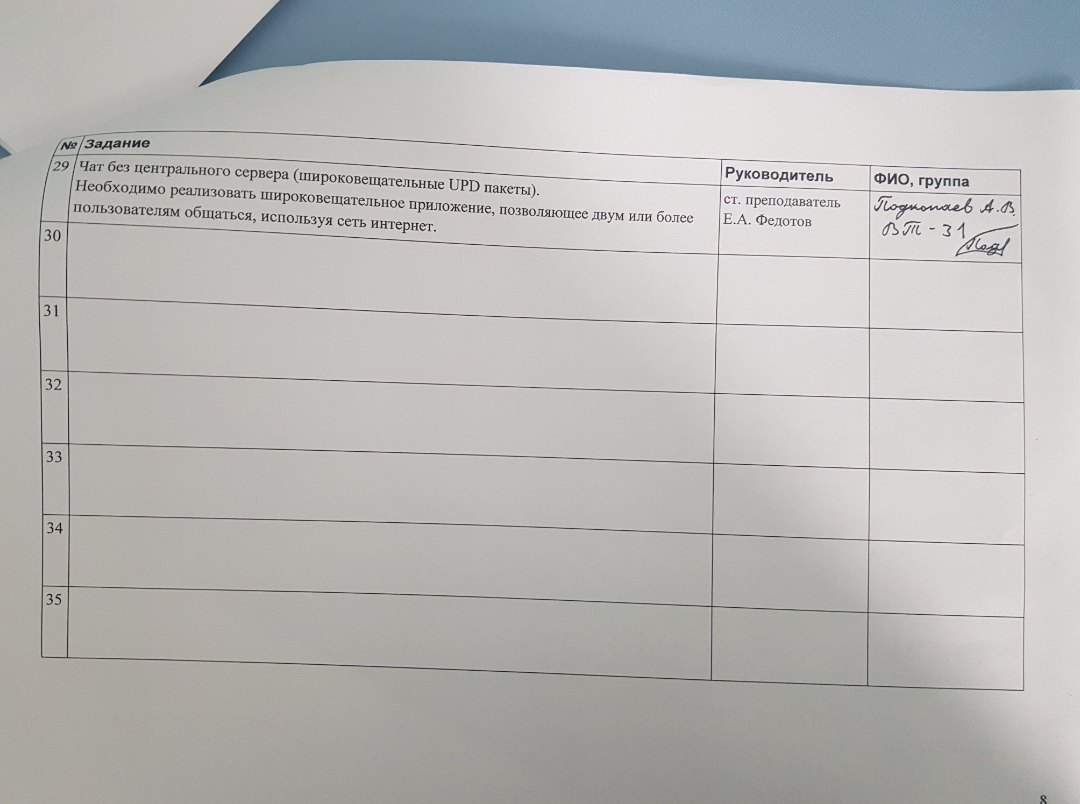 № Задание Руководитель ФИО, группа
29 Чат без центрального сервера (широковещательные UPD пакеты).
Необходимо реализовать широковещательное приложение, позволяющее двум или более
пользователям общаться, используя сеть интернет.
ст. преподаватель
Е.А. Федотов
Подкопаев А.В.
ВТ-31
30
31
32
33
34
35
8